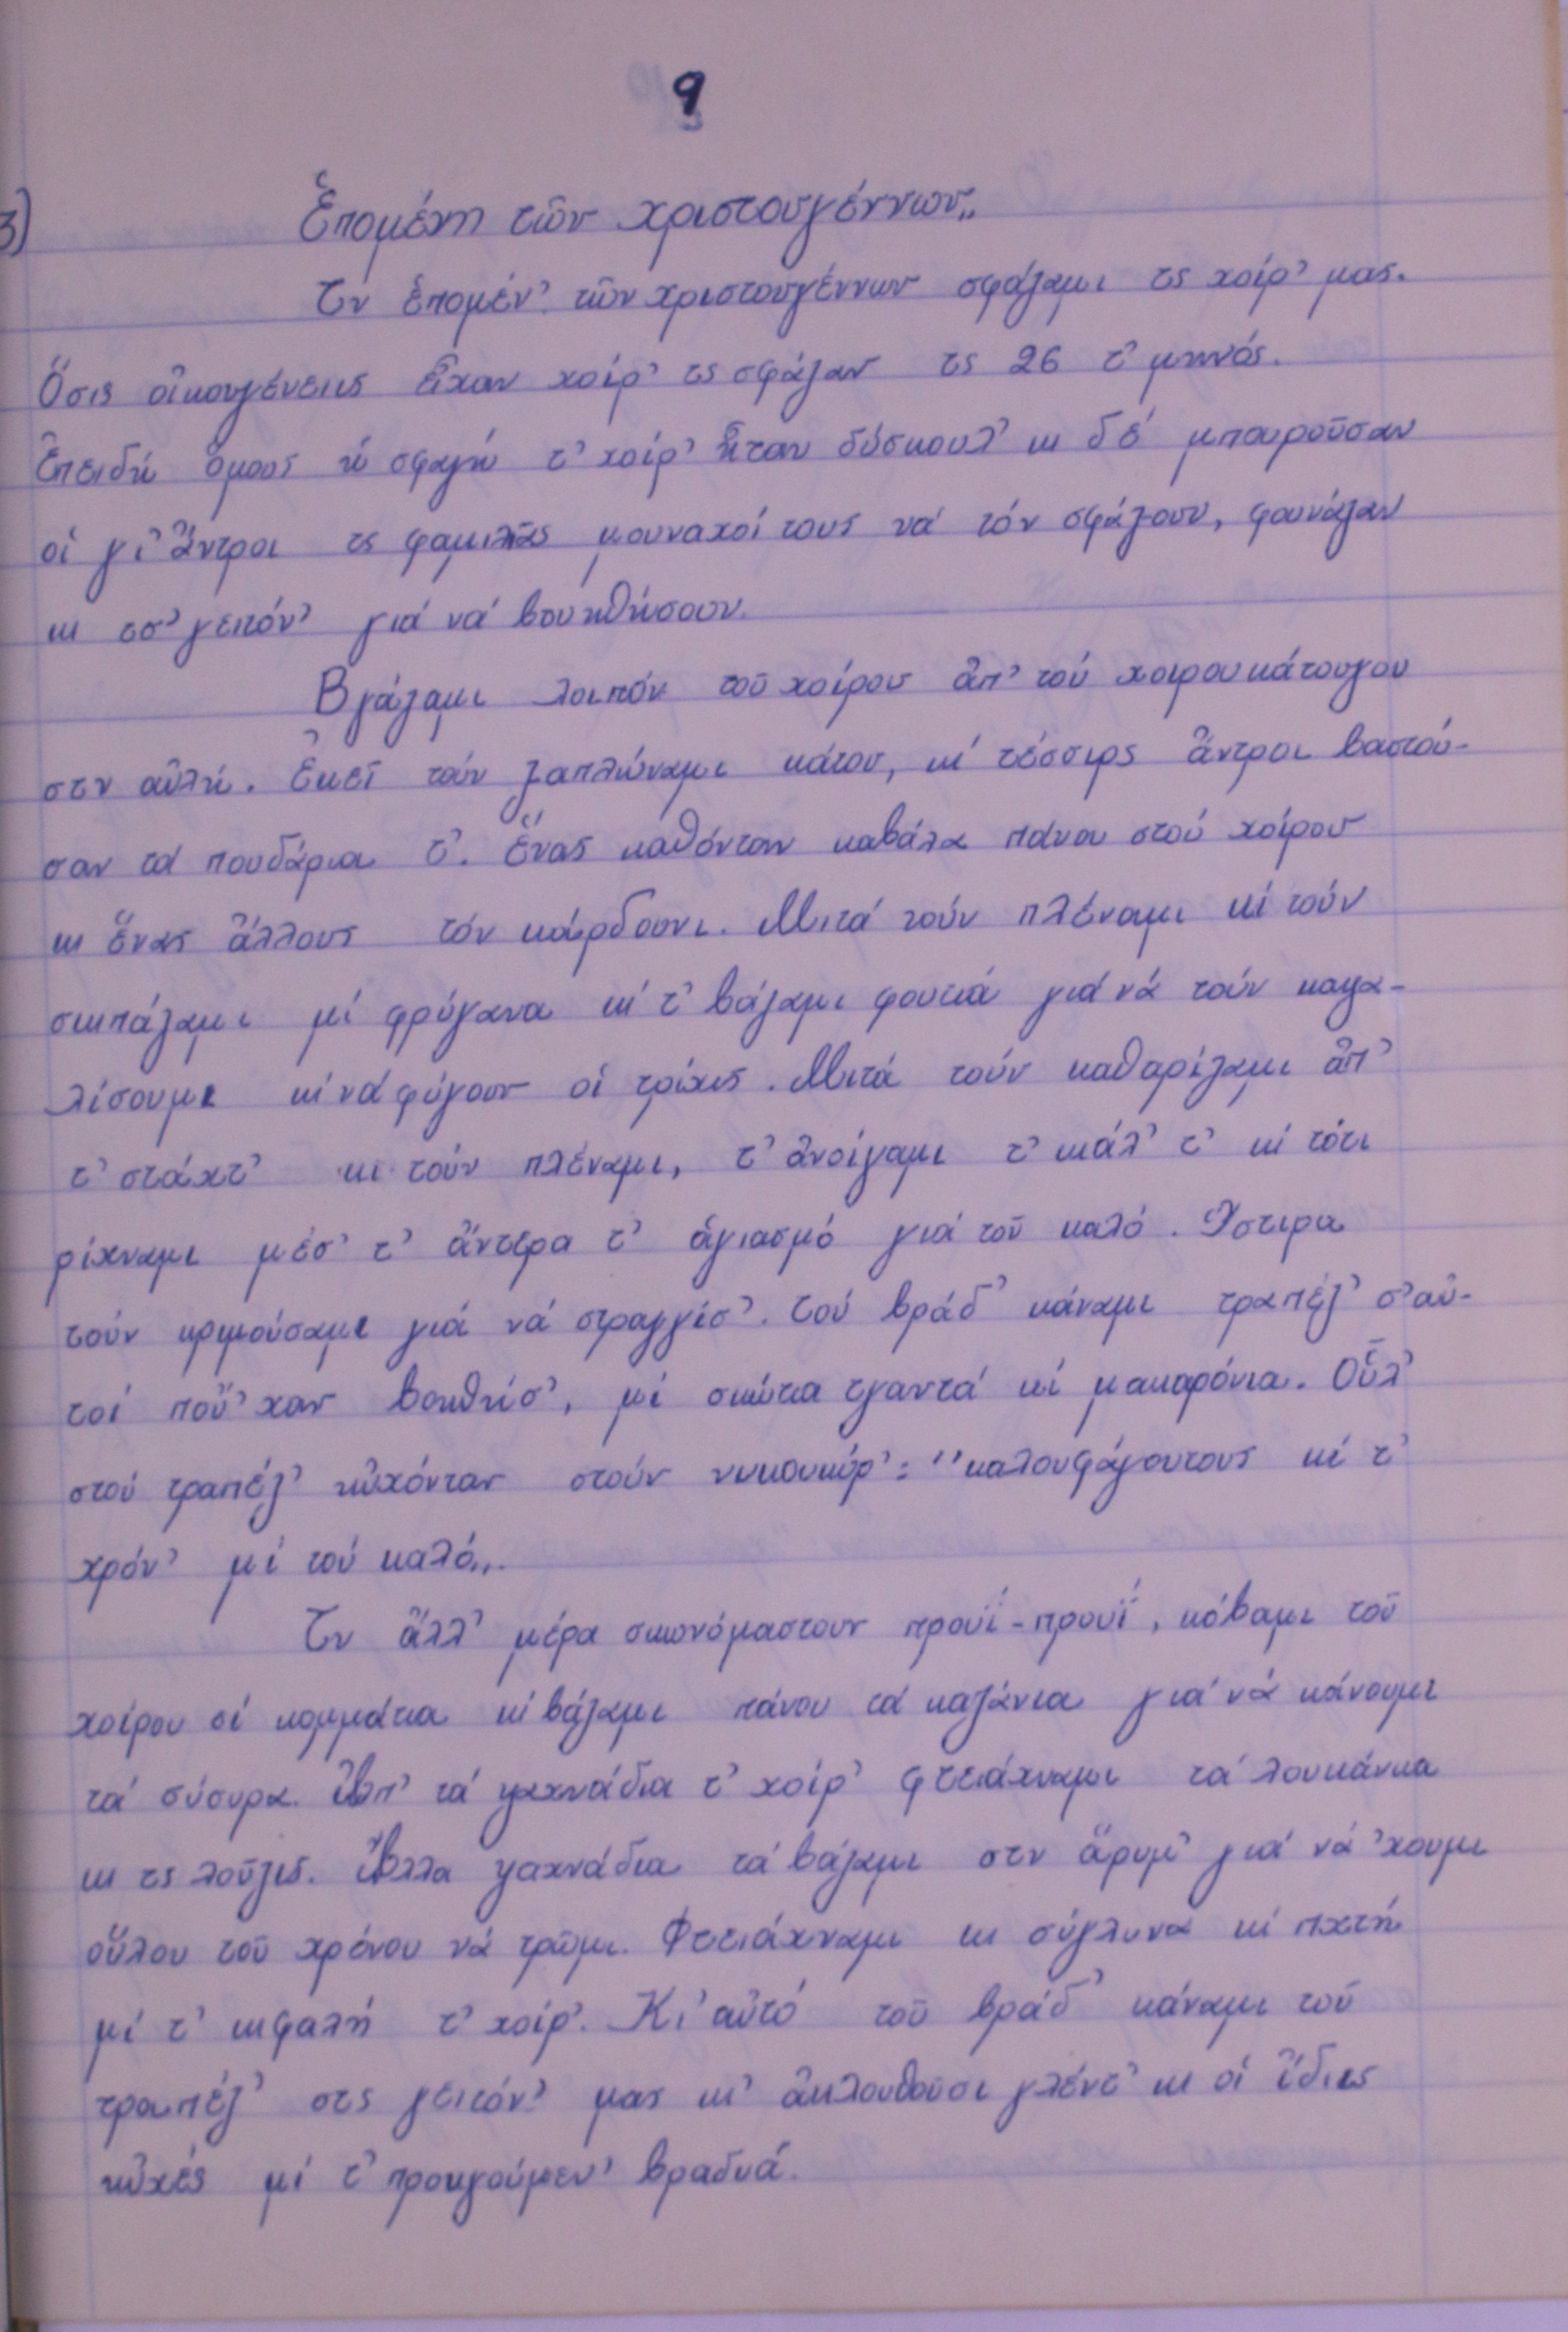 9
3) Ἑπομένη τῶν χριστουγέννων„
Τν ἑπομέν' τῶν χριστουγέννων σφάζαμι τς χοίρ' μας.
Ὅσις οἰκουγένειις εἶχαν χοίρ' τς σφάζαν τς 26 τ' μηνός.
Ἐπειδή ὅμους ἡ σφαγή τ' χοίρ' ἦταν δύσκουλ' κι δέ μπουροῦσαν
οἱ γι' ἄντροι τς φαμιλιᾶς μουναχοί τους νά τόν σφάξουν, φουνάζαν
κι τσ' γειτόν' γιά νά βουηθήσουν.
Βγάζαμι λοιπόν τοῦ χοίρου ἀπ' τού χοιρουκάτουγου
στν αὐλή. Ἐκεῖ τούν ξαπλώναμι κάτου, κί τέσσιρς ἄντροι βαστού-
σαν τά πουδάρια τ'. Ἕνας καθόνταν καβάλα πάνου στού χοίρου
κι ἕνας ἄλλους τόν κάρδουνι. Μιτά τούν πλέναμι κί τούν
σκιπάζαμι μί φρύγανα κί τ' βάζαμι φουτιά γιά νά τούν καψα-
λίσουμι κί νά φύγουν οἱ τρίχις. Μιτά τούν καθαρίζαμι ἀπ'
τ' στάχτ' κι τούν πλέναμι, τ' ἀνοίγαμι τ' κιάλ' τ' κί τότι
ρίχναμι μέσ' τ' ἄντερα τ' ἁγιασμό γιά τοῦ καλό. Ὕστιρα
τούν κριμούσαμι γιά νά στραγγίσ'. Τού βράδ' κάναμι τραπέζ' σ' αὐ-
τοί πού 'χαν βοηθήσ', μί σκώτια τγαντά κί μακαρόνια. Οὗλ'
στού τραπέζ' ηὐχόνταν στούν νικουκύρ': "καλουφάγουτους κί τ'
χρόν' μί τού καλό„.
Τν ἄλλ' μέρα σκωνόμαστουν προυΐ-προυΐ, κόβαμι τοῦ
χοίρου σί κομμάτια κί βάζαμι πάνου τά καζάνια γιά νά κάνουμι
τά σύσυρα. Ἀπ' τά ψαχνάδια τ' χοίρ' φτειάχναμι τά λουκάνκα
κι τς λοῦζις. Ἄλλα ψαχνάδια τά βάζαμι στν ἅρυμ' γιά νά 'χουμι
οὕλου τοῦ χρόνου νά τρῶμι. Φτειάχναμι κι σύγλυνα κί πχτή
μί τ' κιφαλή τ' χοίρ'. Κι' αὐτό τοῦ βράδ' κάναμι τοῦ
τραπέζ' στς γειτόν' μας κι' ἀκλουθοῦσι γλέντ' κι οἱ ἴδιις
ηὐχές μί τ' προηγούμεν' βραδυά.